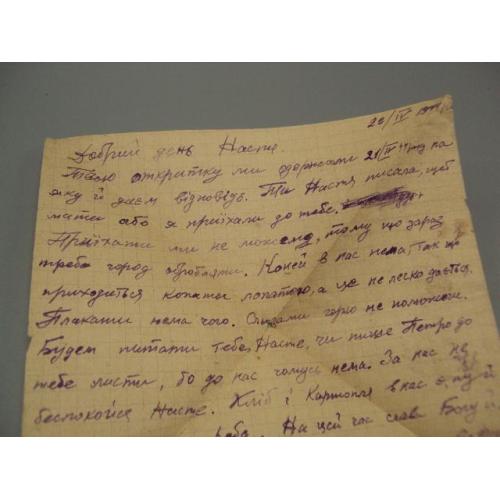 28/IV 1944
Добрий день Насте.
Твою открытку ми одержали 21/IV 44 на
яку й даєм відповідь. Ти Настя писала, щоб
мати або я приїхали до тебе.
Приїхати ми не можемо, тому що зараз
треба город обробляти. Коней в нас нема, так що
приходиться копати лопатою, а це не легко дається.
Плакати нема чого. Слізами горю не поможеш.
Будем питати тебе, Насте, чи пише Петро до
тебе листи, бо до нас чомусь нема. За нас не
беспокойся Насте. Хліб і картопля в нас є,
На цей час слава Богу й